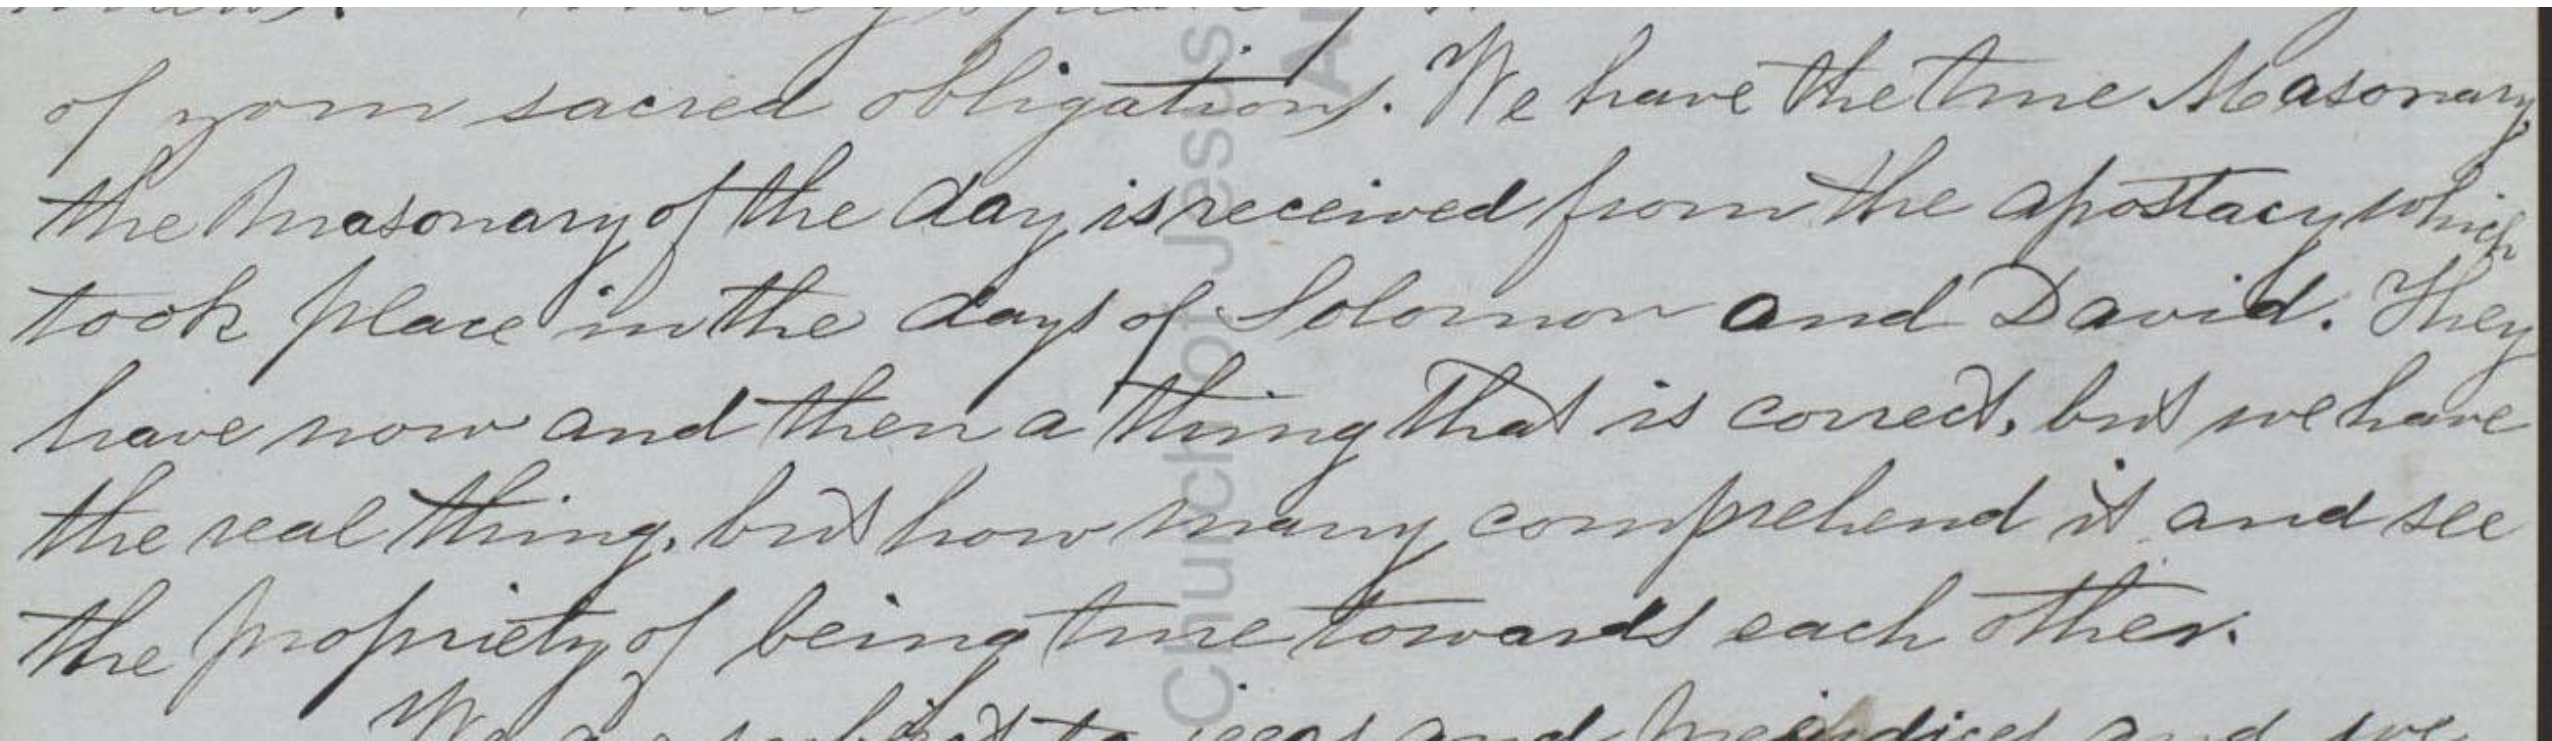 of your sacred obligations. We have the true Masonary,
the Masonary of the day is received from the apostacy which
took place in the days of Solomon and David. They
have now and then a thing that is correct, but we have
the real thing, but how many comprehend it and see
the propriety of being true towards each other.
We are subject to and prejudices and we
Church of Jesus